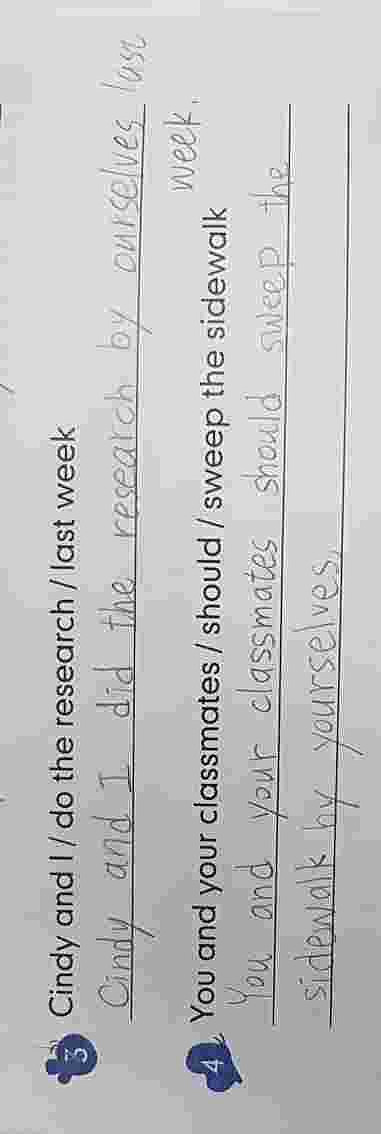 3 Cindy and I / do the research / last week
Cindy and I did the research by ourselves last
week.
4 You and your classmates / should / sweep the sidewalk
You and your classmates should sweep the
sidewalk by yourselves.